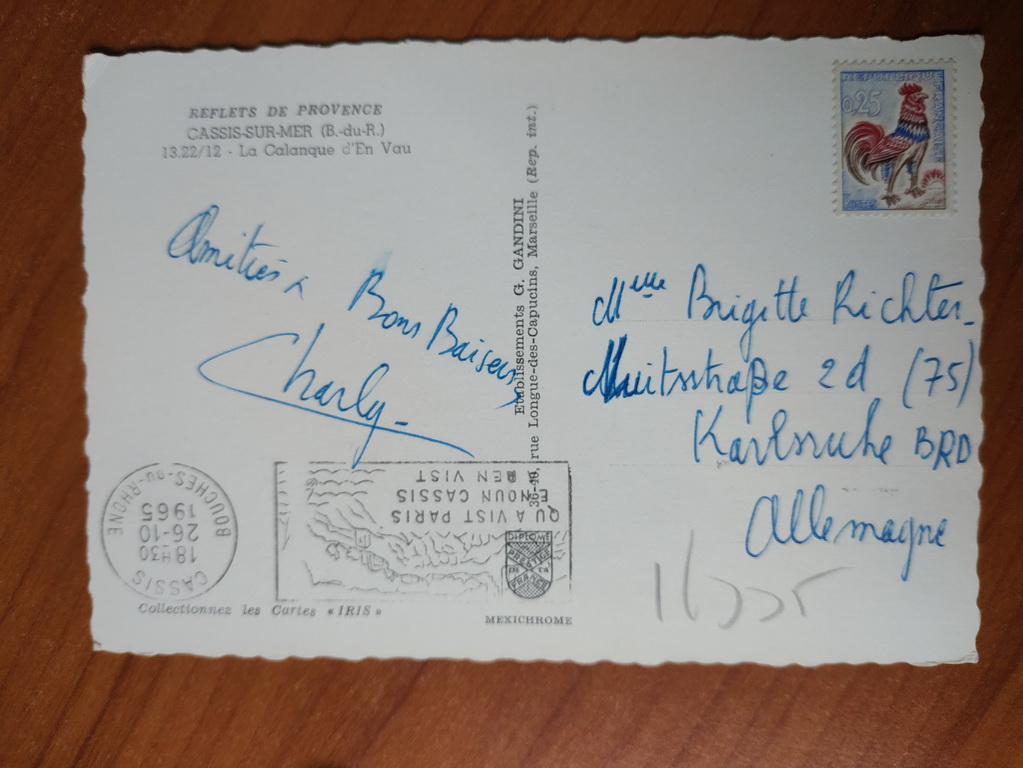 REFLETS DE PROVENCE
CASSIS-SUR-MER (B.-du-R.)
13.22/12 - La Calanque d'En Vau
Amitiés &
Bons Baisers
Charly
Etablissements G. GANDINI
rue Longue-des-Capucins, Marseille (Rep. int.)
0,25
POSTES
Melle Brigitte Richter
2d (75)
Karlsruhe BRD
Allemagne
CASSIS
18H30
26-10
1965
BOUCHES-DU-RHONE
QU A VIST PARIS
E NOUN CASSIS
REN VIST
DIPLOME
PRESTIGE
DE LA
FRANCE
Collectionnez les Cartes « IRIS »
MEXICHROME